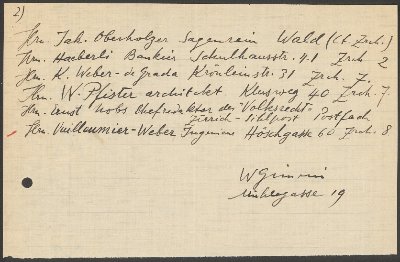 2)
Hrn. Jak. Oberholzer Sagenrein Wald (Ct. Zrch.)
Hrn. Haeberli Bankier Schulhausstr. 41 Zrch 2
Hrn. K. Weber-de Grada Krönleinstr. 31 Zrch. 7.
Hrn. W. Pfister architekt Klusweg 40 Zrch. 7.
Hrn. Ernst Nobs Chefredaktor des "Volksrecht"
Zürich-Sihlpost Postfach
Hrn. Vuilleumier-Weber Ingenieur Höschgasse 60 Zrch. 8
W Gimmi
19